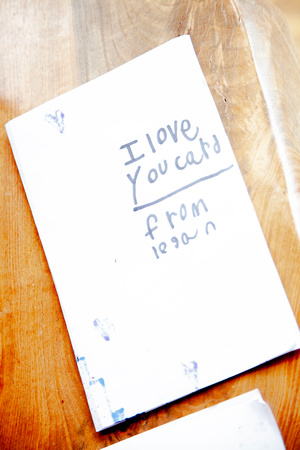 I love
You card
from
legan